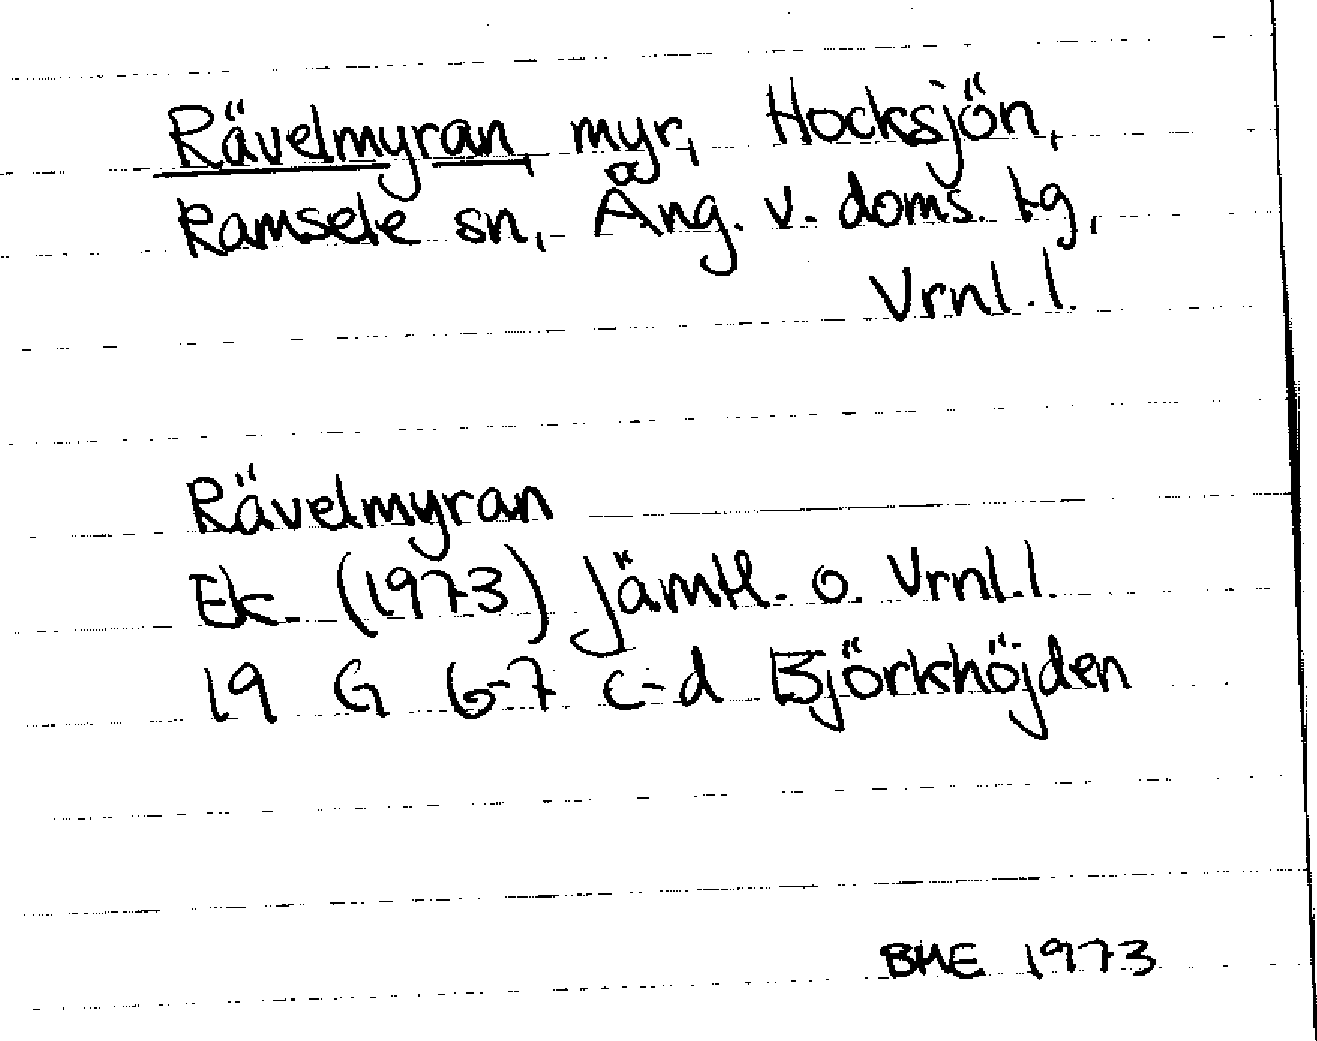 Rävelmyran, myr, Hocksjön,
Ramsele sn, Ång. v. doms. tg,
Vrnl. l.
Rävelmyran
Ek. (1973) Jämtl. o. Vrnl. l.
19 G 6-7 c-d Björkhöjden
BME 1973